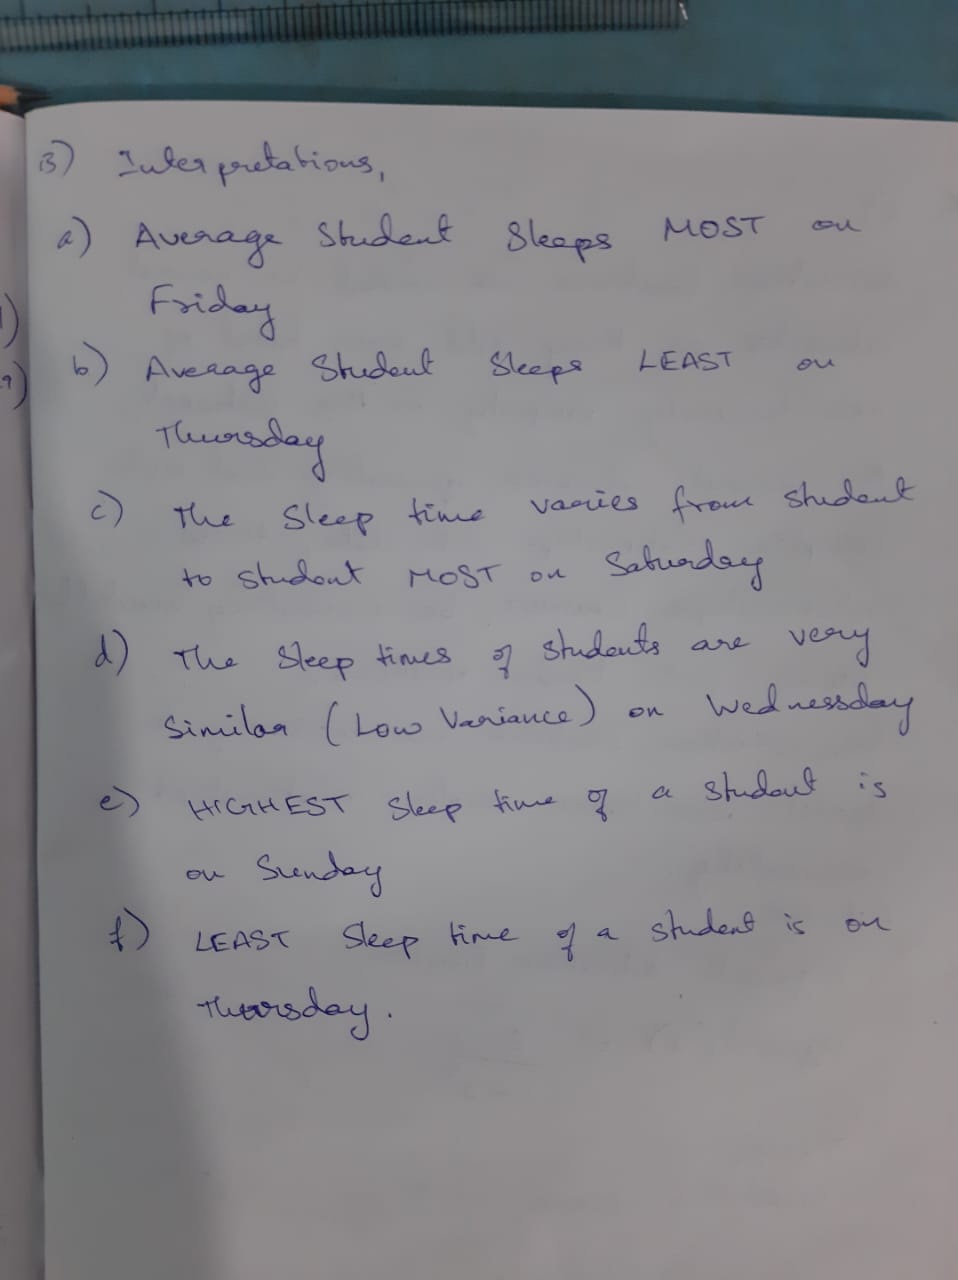 3) Interpretations,
a) Average Student Sleeps MOST on
Friday
b) Average Student Sleeps LEAST on
Thursday
c) The Sleep time varies from student
to student MOST on Saturday
d) The Sleep times of students are very
Similar (Low Variance) on Wednesday
e) HIGHEST Sleep time of a student is
on Sunday
f) LEAST Sleep time of a student is on
Thursday.